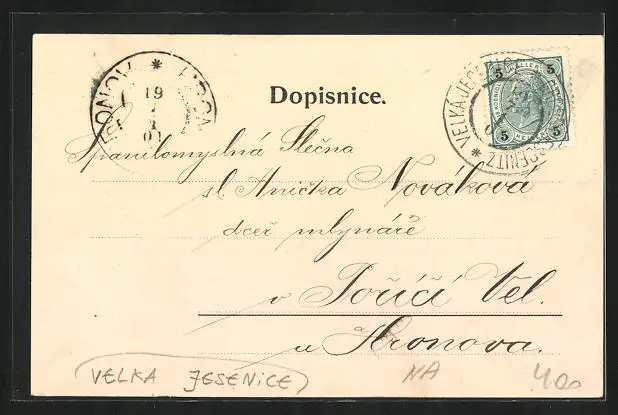 Dopisnice.
HRONOV * HRONOV
19
VELKÁ JESENICE
5 5
5 5
Spanilomyslná Slečna
sl. Anička Nováková
dceř mlynáře
v Poříčí Vel.
u Hronova.
VELKA JESENICE
NA
400